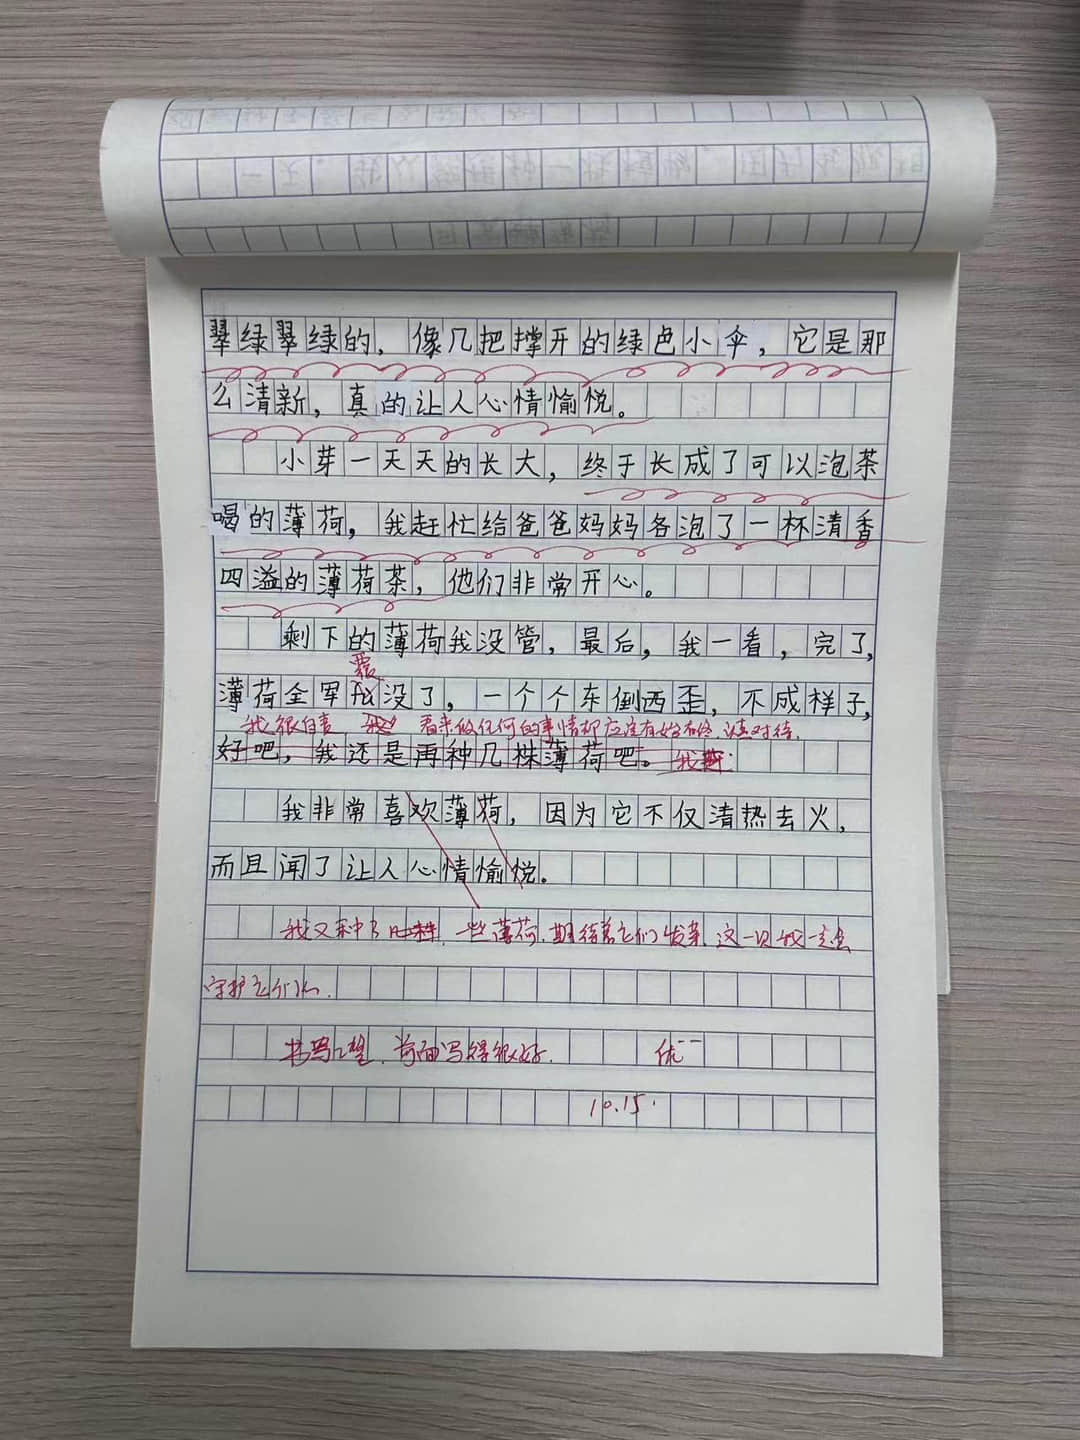 翠绿翠绿的，像几把撑开的绿色小伞，它是那
么清新，真的让人心情愉悦。
小芽一天天的长大，终于长成了可以泡茶
喝的薄荷，我赶忙给爸爸妈妈各泡了一杯清香
四溢的薄荷茶，他们非常开心。
剩下的薄荷我没管，最后，我一看，完了，
覆
薄荷全军没了，一个个东倒西歪，不成样子，
我很自责 看来做任何的事情都应该有始有终，认真对待。
好吧，我还是再种几株薄荷吧。我
我非常喜欢薄荷，因为它不仅清热去火，
而且闻了让人心情愉悦。
我又种了一些薄荷，期待着它们发芽，这一次我一定会
守护它们。
书写工整，前面写得很好。 优--
10.15.